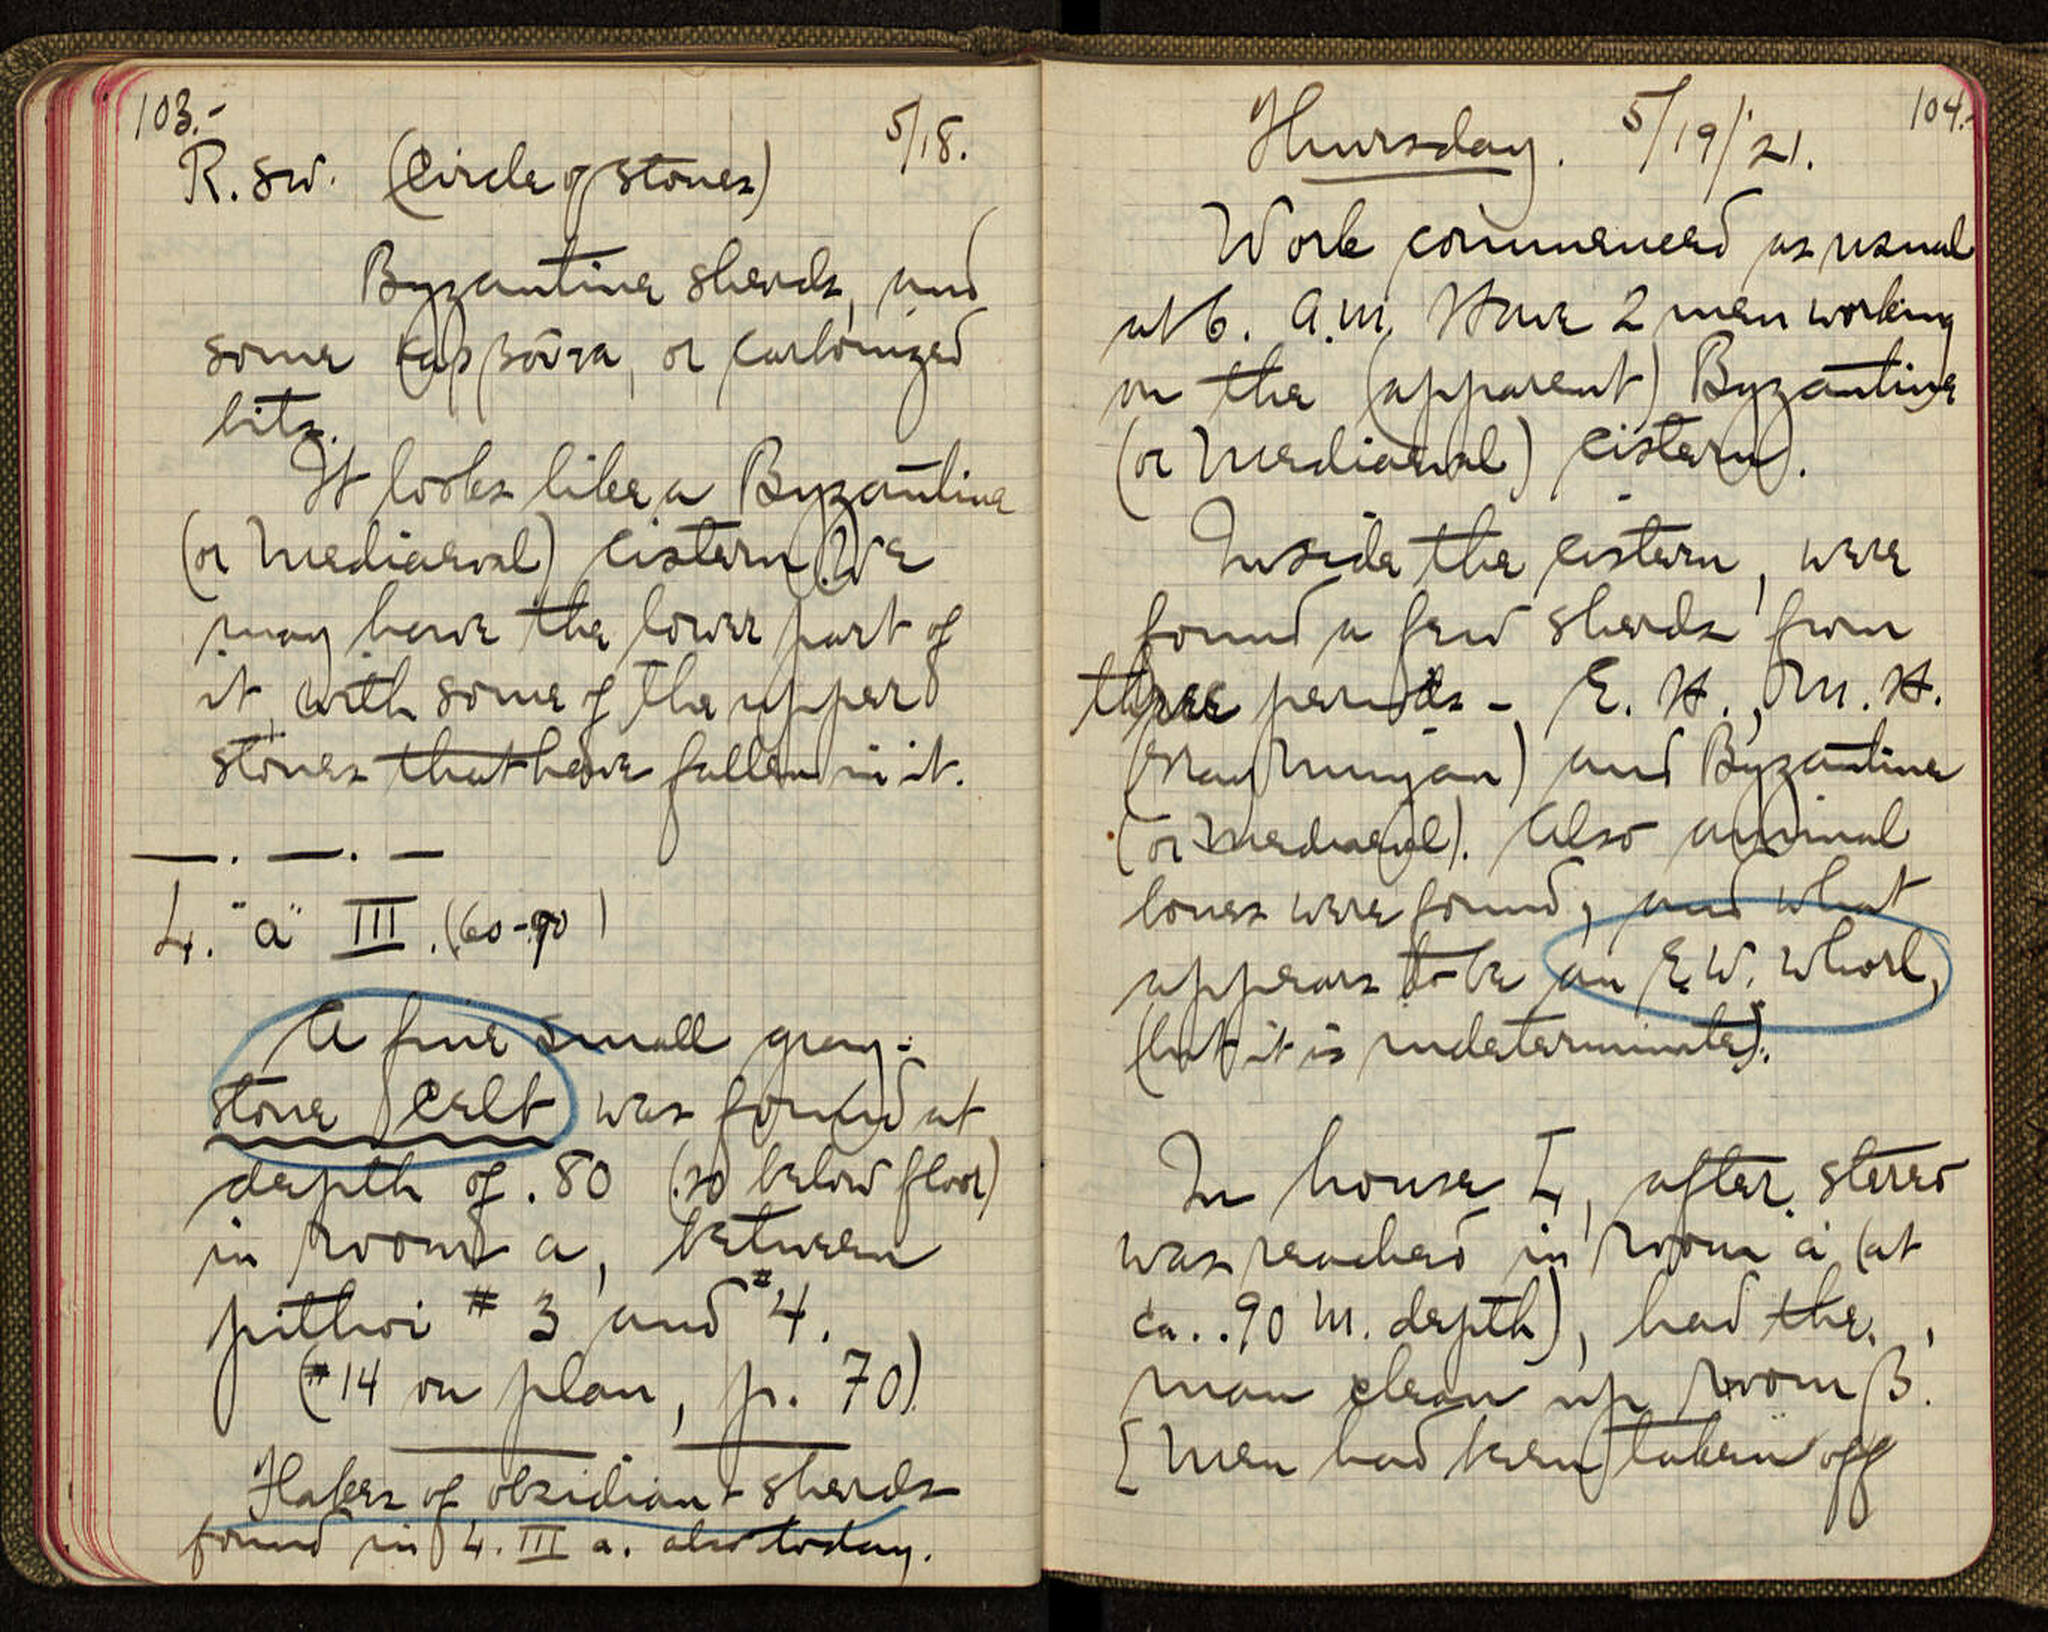 103.-
5/18.
R. sw. (Circle of stones)
Byzantine sherds, and
some καρβουνα, or carbonized
bits.
It looks like a Byzantine
(or Mediaeval) cistern (?) We
may have the lower part of
it, with some of the upper
stones that have fallen in it.
4. "a" III. (60-.90)
A fine small gray-
stone celt was found at
depth of .80 (.20 below floor)
in room a, between
pithoi #3 and #4.
(#14 on plan, p. 70)
Flakes of obsidian + sherds
found in 4. III a. also today.
104.-
Thursday. 5/19/'21.
Work commenced as usual
at 6. a.m. Have 2 men working
on the (apparent) Byzantine
(or Mediaeval) cistern.
Inside the cistern, were
found a few sherds from
three periods - E. H., M. H.
(Gray Minyan) and Byzantine
(or Mediaeval). Also animal
bones were found, and what
appears to be an E.W. whorl,
(but it is indeterminate).
In house 4, after stereo
was reached in room a (at
ca. .90 m. depth), had the
man clean up room β.
[Men had been taken off